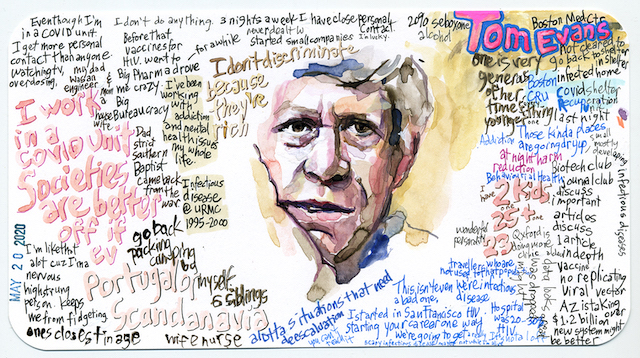 Tom Evans
Boston Med Ctr
Eventhough I'm
in a COVID unit
I get more personal
contact than anyone
watching tv, my dad
overdosing, was an
engineer &
mom was a
house
wife
I don't do anything. 3 nights a week I have close personal
contact.
I'm lucky.
Before that
vaccines for
HIV. went to
Big Pharma drove
me crazy.
Big
Bureaucracy
for awhile
never dealt w
started small companies
20% seboyone
alcohol
I don't discriminate
because
they're
rich
I've been
working
with
addiction
and mental
health issues
my whole
life
I work
in a
covid unit
Societies
are better
off if
Dad
strict
southern
Baptist
came back
from the
war
Infectious
disease
@ URMC
1995-2000
go back
packing
camping
by
myself
6 siblings
Portugal or
Scandanavia
MAY 20 2020
I'm like that
a lot cuz I'm a
nervous
high strung
person. keeps
me from fidgeting
ones closest in age
wife nurse
a lot of situations that need
deescalation
you can't
teach it
I started in San Francisco HIV
your career one way
We're going to get one
This isn't even were infectious
a bad one. disease
travellers who are
not used to
Hospital
was 20-30%
HIV.
one is very
generous
other
time
younger
not cleared to
go back to shelter
Boston
CRU
infected home
covid shelter
Recuperation
unit
last night
Addiction
These kinda places
are going dry up.
at night harm
reduction
Behavioral Health
small
mostly
developing
infectious diseases
I have
2 kids
25 +
23
one
one
wonderful
personality
Oxford is
Hong more
Biotech club
journal club
discuss
important
articles
discuss
1 article
in depth
vaccine
no replicating
viral vector
AZ is taking
$1.2 billion
over
new system might
be better